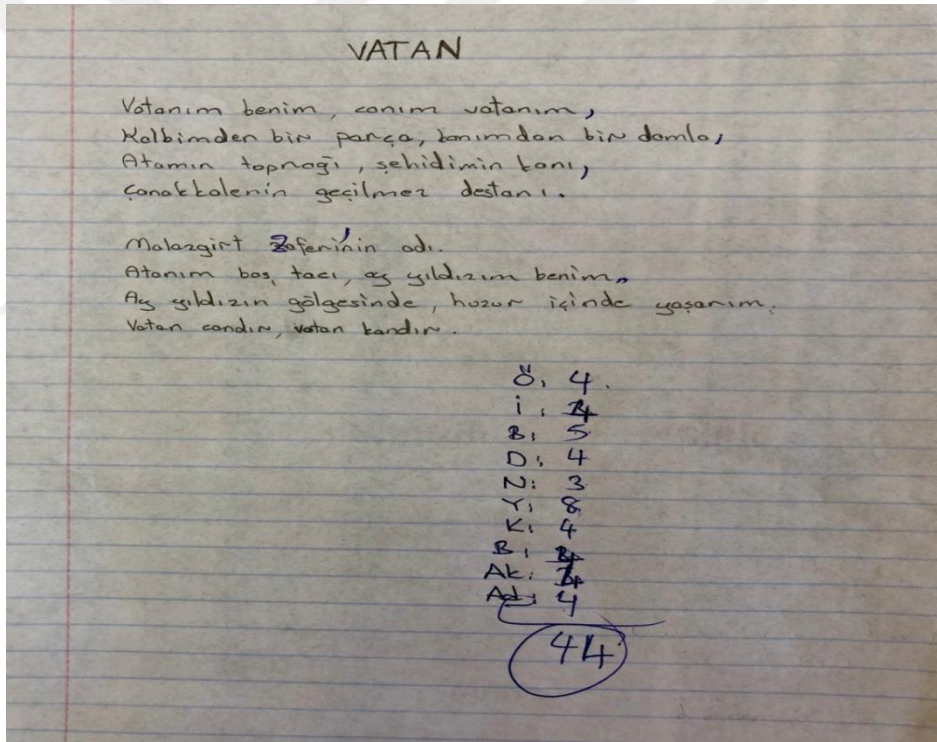 VATAN
Vatanım benim, canım vatanım,
Kalbimden bir parça, kanımdan bir damla,
Atamın toprağı, şehidimin kanı,
Çanakkalenin geçilmez destanı.
Malazgirt Zaferi'nin adı.
Atanım baş tacı, ay yıldızım benim,
Ay yıldızın gölgesinde, huzur içinde yaşarım.
Vatan candır, vatan kandır.
Ö: 4.
İ: 4
B: 5
D: 4
N: 3
Y: 8
K: 4
B: 4
Ak: 4
Ad: 4
44